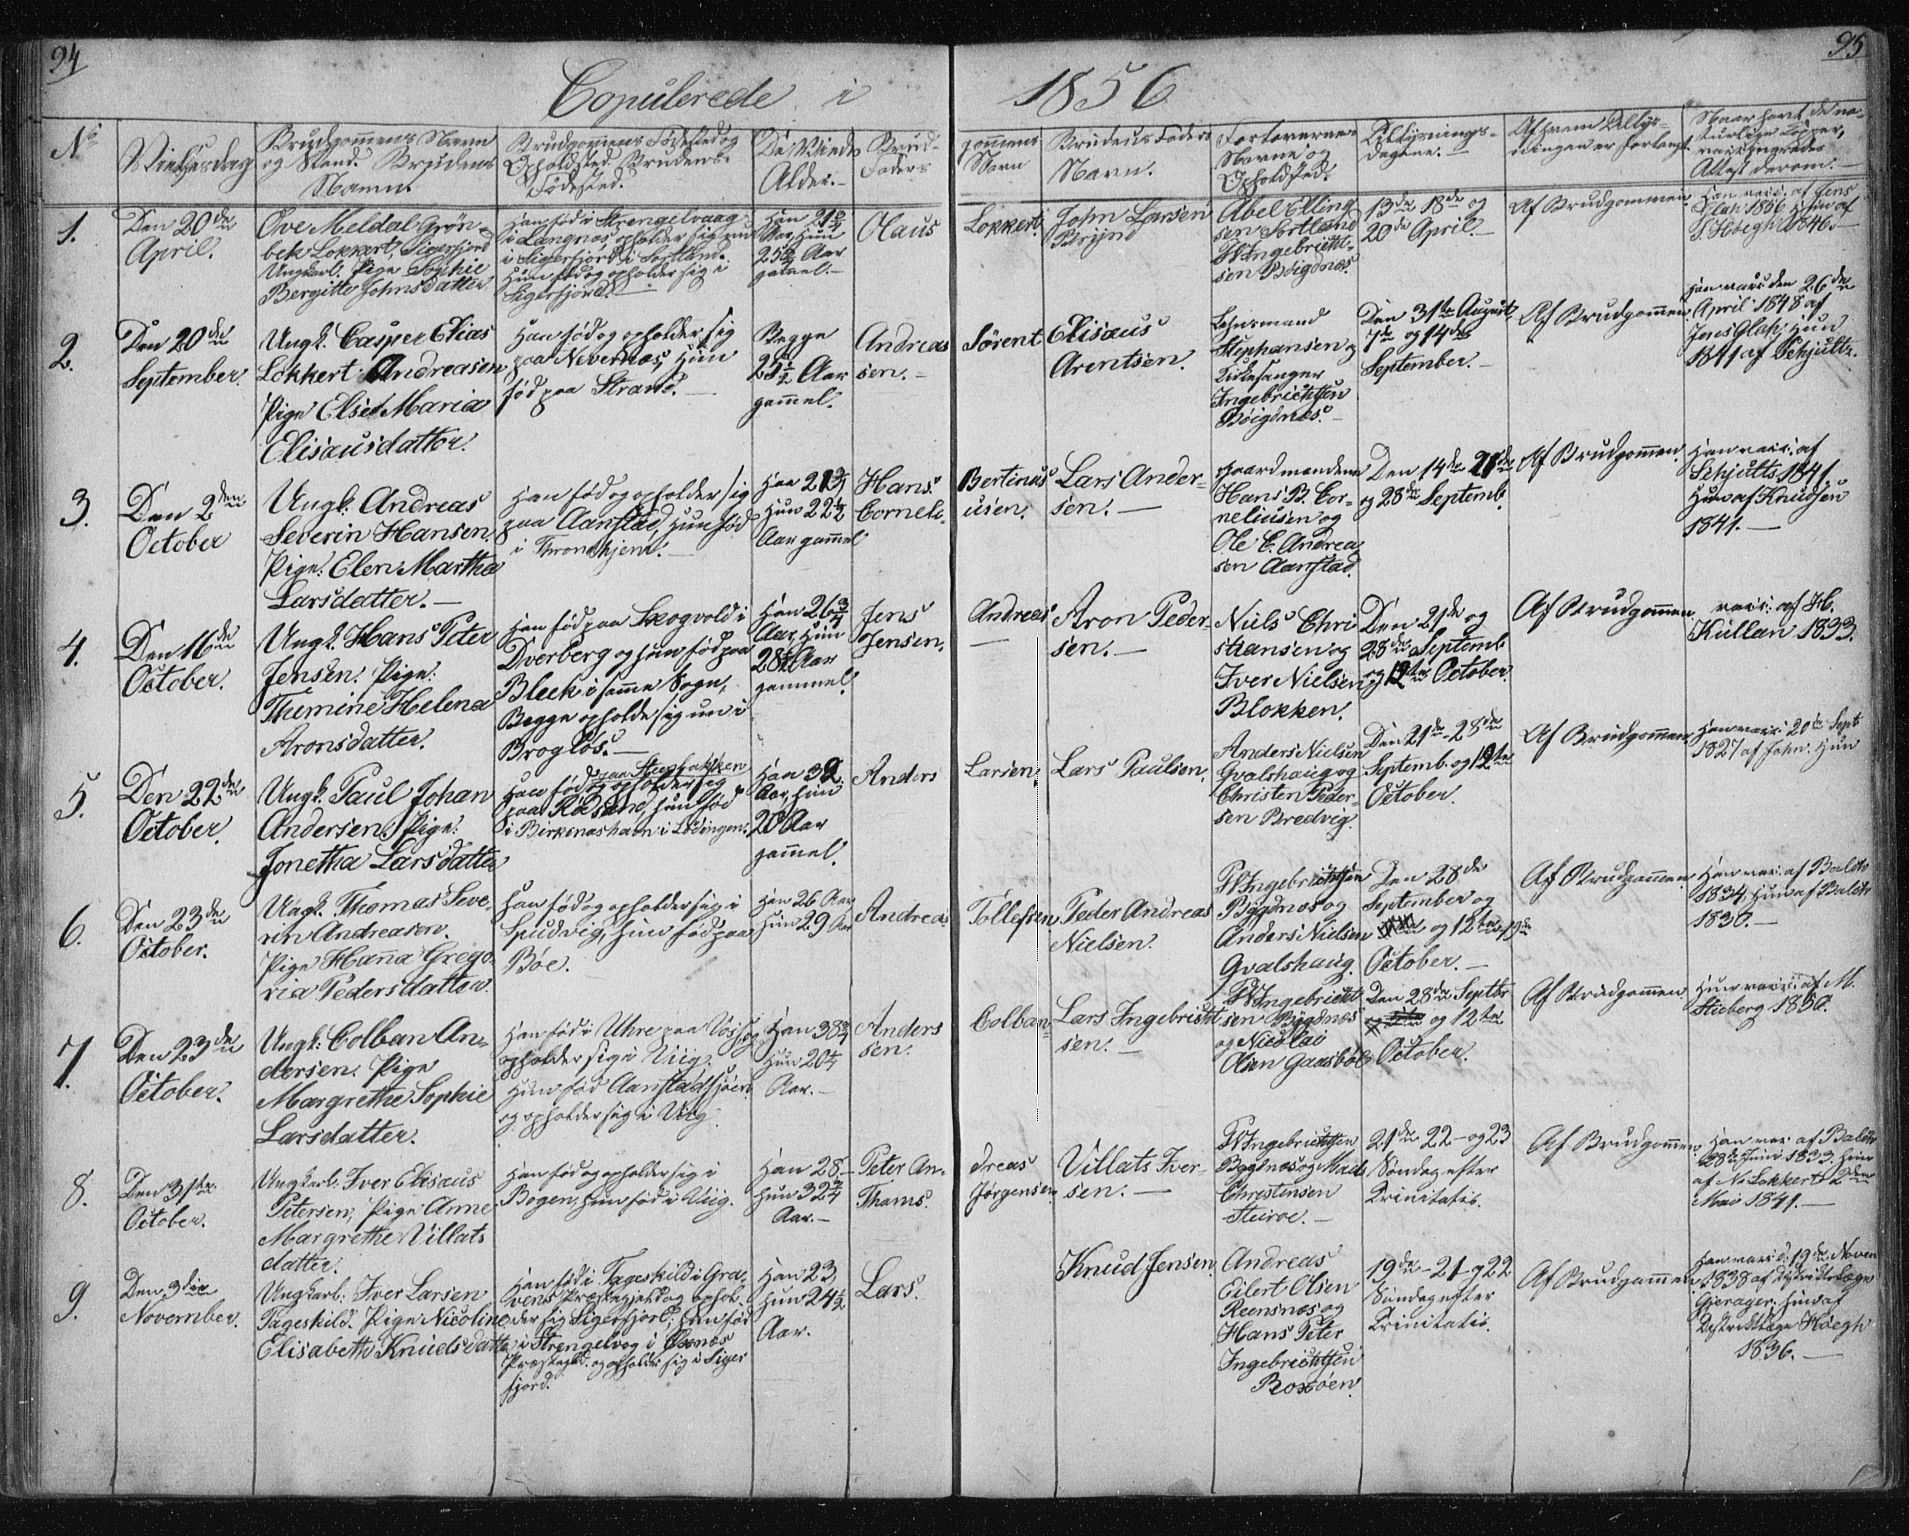 94
95
Copulerede i 1856
No
Vielsesdag
Brudgommens Navn
og Stand. Brudens
Navn.
Brudgommens Fødested og
Opholdsted. Brudens
Fødested.
De Viedes
Alder.
Brud-
Faders
gommens
Navn
Brudens Faders
Navn.
Forlovernes
Navne og
Opholdsted.
Tillysnings-
dagene.
Af hvem Tillys-
ningen er forlangt.
Naar havt de na-
turlige Kopper,
vaccinerede
Attest derom.
1.
Den 20de
April.
Ove Meldal Grøn-
bek Lokkert, Sigerfjord
Ungkarl. Pige Sophie
Bergitte Johnsdatter
Han fød i Strengelvaag
i Langnæs opholder sig nu
i Sigerfjord i Sortland.
Hun fød og opholder sig i
Sigerfjord.
Han 21
Aar, Hun
25 Aar
gammel.
Olaus
Lokkert
John Larsen
Brynd
Abel Elling
sen Sortland
Ingebrigt-
sen Bøigdnæs.
13de 18de og
20de April.
Af Brudgommen
Han vacc. af Jens
Olah 1856 Hun af
Høegh 1846.
2.
Den 20de
September.
Ungk. Casper Elias
Lokkert Andreasen
Pige Elsie Maria
Elisausdatter.
Han fød og opholder sig
paa Nevernæs, Hun
fød paa Strand.
Begge
25½ Aar
gammel.
Andreas
sen.
Sørent
Elisaus
Arentsen.
Lehnsmand
Stephansen og
Kirkesanger
Ingebrichtsen
Bøigdnæs.
Den 31te August,
7de og 14de
September.
Af Brudgommen
Han vacc. den 26de
April 1848 af
Jens Olah, Hun
1841 af Schjultz.
3.
Den 2den
October
Ungk. Andreas
Severin Hansen.
Pige: Elen Martha
Larsdatter.
Han fød og opholder sig
paa Aanstad, Hun fød
i Thronhjem.
Han 21¾
Hun 22½
Aar gammel
Hans
Corneli-
Bertinus
usen.
Lars Ander-
sen.
Gaardmændene
Hans B. Cor-
neliusen og
Ole C. Andrea
sen Aanstad.
Den 14de 21de
og 28de Septemb.
Af Brudgommen.
Han vacc. af
Schjultz 1841.
Hun af Knudsen
1841.
4.
Den 16de
October.
Ungk. Hans Peter
Jensen. Pige:
Thumine Helena
Aronsdatter.
Han fød paa Skogvold i
Dverberg og hun fød paa
Bleek i samme Sogn,
Begge opholde sig nu i
Brogløs.
Han 26¾
Aar, Hun
28 Aar
gammel.
Jens
Jensen.
Andreas
Aron Peder-
sen.
Niels Chri
stiansen og
Iver Nielsen
Blokken.
Den 21de og
28de Septemb
og 12te October.
Af Brudgommen.
vacc. af H.
Kullan 1833.
5.
Den 22de
October.
Ungk. Paul Johan
Andersen. Pige:
Jonetha Larsdatter
Han fød paa Stegbakken
og opholder sig
paa Råsand, hun fød
i Birkenæshavn i Lødingen.
Han 32
Aar, hun
20 Aar
gammel.
Anders
Larsen.
Lars Paulsen.
Anders Nielsen
Gvalshaug og
Christen Peder-
sen Bredvig.
Den 21de - 28de
Septemb. og 12te
October.
Af Brudgommen
Han vacc. 20de Sept
1827 af Jahn. Hun
6.
Den 23de
October.
Ungk. Thomas Seve-
rin Andreasen.
Pige Hanna Grego-
ria Pedersdatter.
Han fød og opholder sig i
Spudvig, hun fød paa
Bøe.
Han 26 Aar
Hun 29 Aar
Andreas
Tollefsen
Peder Andreas
Nielsen.
Ingebrichtsen
Bygdnæs og
Anders Nielsen
Gvalshaug.
Den 28de
September og
og 12te 19de
October.
Af Brudgommen.
Han vac. af Baldtv
1834, Hun af Baldtv
1830.
7.
Den 23de
October.
Ungk: Colban An-
dersen. Pige
Margrethe Sophie
Larsdatter.
Han fød i Uhre paa Vos
opholder sig i Viig.
Hun fød Aanstadsjøen
og opholder sig i Viig.
Han 38¾
Hun 20¼
Aar.
Anders
sen.
Colban
Lars Ingebricht
sen.
Ingebricht
sen Bygdnæs
og Nicolai
Olsen Gaasbøl
Den 28de Septbr
og 12te
October.
Af Brudgommen
Hun vacc. af M.
Steeberg 1850.
8.
Den 31te
October.
Ungkarl. Iver Elisaus
Petersen, Pige Anne
Margrethe Villats
datter.
Han fød og opholder sig i
Bogen, hun fød i Viig.
Han 28
Hun 32
Aar.
Peter An-
Thams.
dreas
Jørgensen
Villats Iver-
sen.
Ingebrichtsen
Bygdnæs og
Christensen
Steiroe.
21de 22 og 23
Søndag efter
Trinitatis.
Af Brudgommen.
Han vac. af Baldtv
28de Juni 1833. Hun
af N. Lokkert 2den
Mai 1841.
9.
Den 3die
November.
Ungkarl. Iver Larsen
Tageskild. Pige Nicoline
Elisabeth Knudsdatter
Han fød i Tageskild i Gra-
vens Præstegjeld og ophol-
der sig Sigerfjord, hun fød
i Strengelvog i Øxnæs
Præstegjld. og opholder sig i Siger
fjord.
Han 23
Hun 24½
Aar.
Lars.
Knud Jensen.
Andreas
Eilert Olsen
Reensnæs og
Hans Peter
Ingebrichtsen
Roxøen.
19de - 21 - og 22
Søndag efter
Trinitatis.
Af Brudgommen
Han vacc. d. 19de Novem
1838 af Distriktslæge
Gjerager. Hun af
Distriktslæge Høegh
1836.